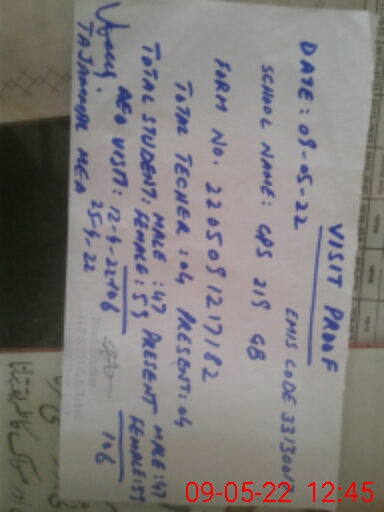 VISIT PROOF
DATE: 09-05-22 EMIS CODE 3313004
SCHOOL NAME: GPS 219 GB
FORM NO. 2205091217182
TOTAL TECHER: 04 PRESENT: 04
TOTAL STUDENT: MALE: 47 PRESENT MALE: 47
FEMALE: 59 FEMALE: 59
106 106
AEO VISIT: 12-4-22
25-4-22
TAJAMMAL MEA
09-05-22 12:45